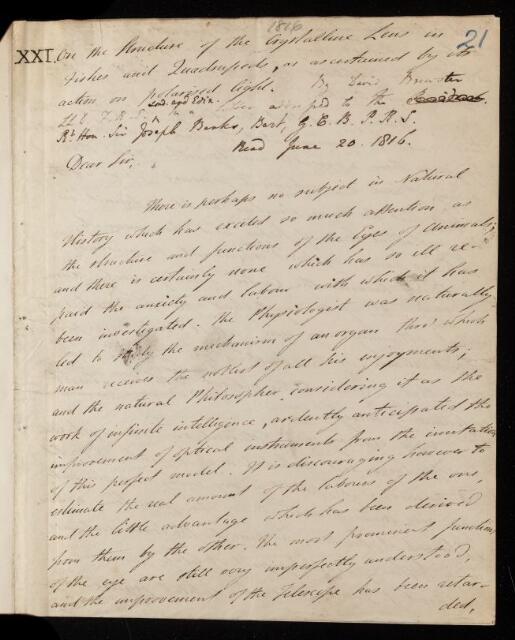 1816
21
XXI. On the Structure of the Crystalline Lens in
Fishes and Quadrupeds, as ascertained by its
action on polarised light. By David Brewster
LL.D. F.R.S. Lond. and Edin. In a letter addressed to the
Rt. Hon. Sir Joseph Banks, Bart, G.C.B. P.R.S.
Read June 20. 1816.
Dear Sir,
There is perhaps no subject in Natural
History which has excited so much attention as
the structure and functions of the Eyes of Animals;
and there is certainly none which has so ill re-
paid the anxiety and labour with which it has
been investigated. The Physiologist was naturally
led to study the mechanism of an organ thro' which
man receives the noblest of all his enjoyments;
and the natural Philosopher, considering it as the
work of infinite intelligence, ardently anticipated the
improvement of optical instruments from the imitation
of this perfect model. It is discouraging however to
estimate the real amount of the labours of the one,
and the little advantage which has been derived
from them by the other. The most prominent functions
of the eye are still very imperfectly understood,
and the improvement of the Telescope has been retar-
ded,